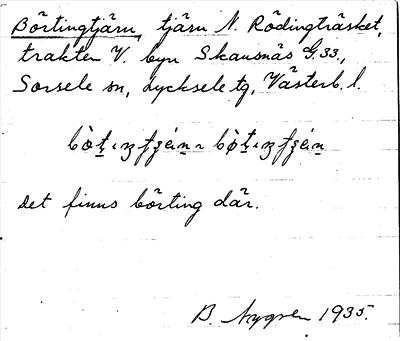 Börtingtjärn, tjärn N. Rödingträsket,
trakten V. byn Skansnäs G.33.,
Sorsele sn, Lycksele tg, Västerb. l.
Det finns börting där.
B. Nygren 1935.